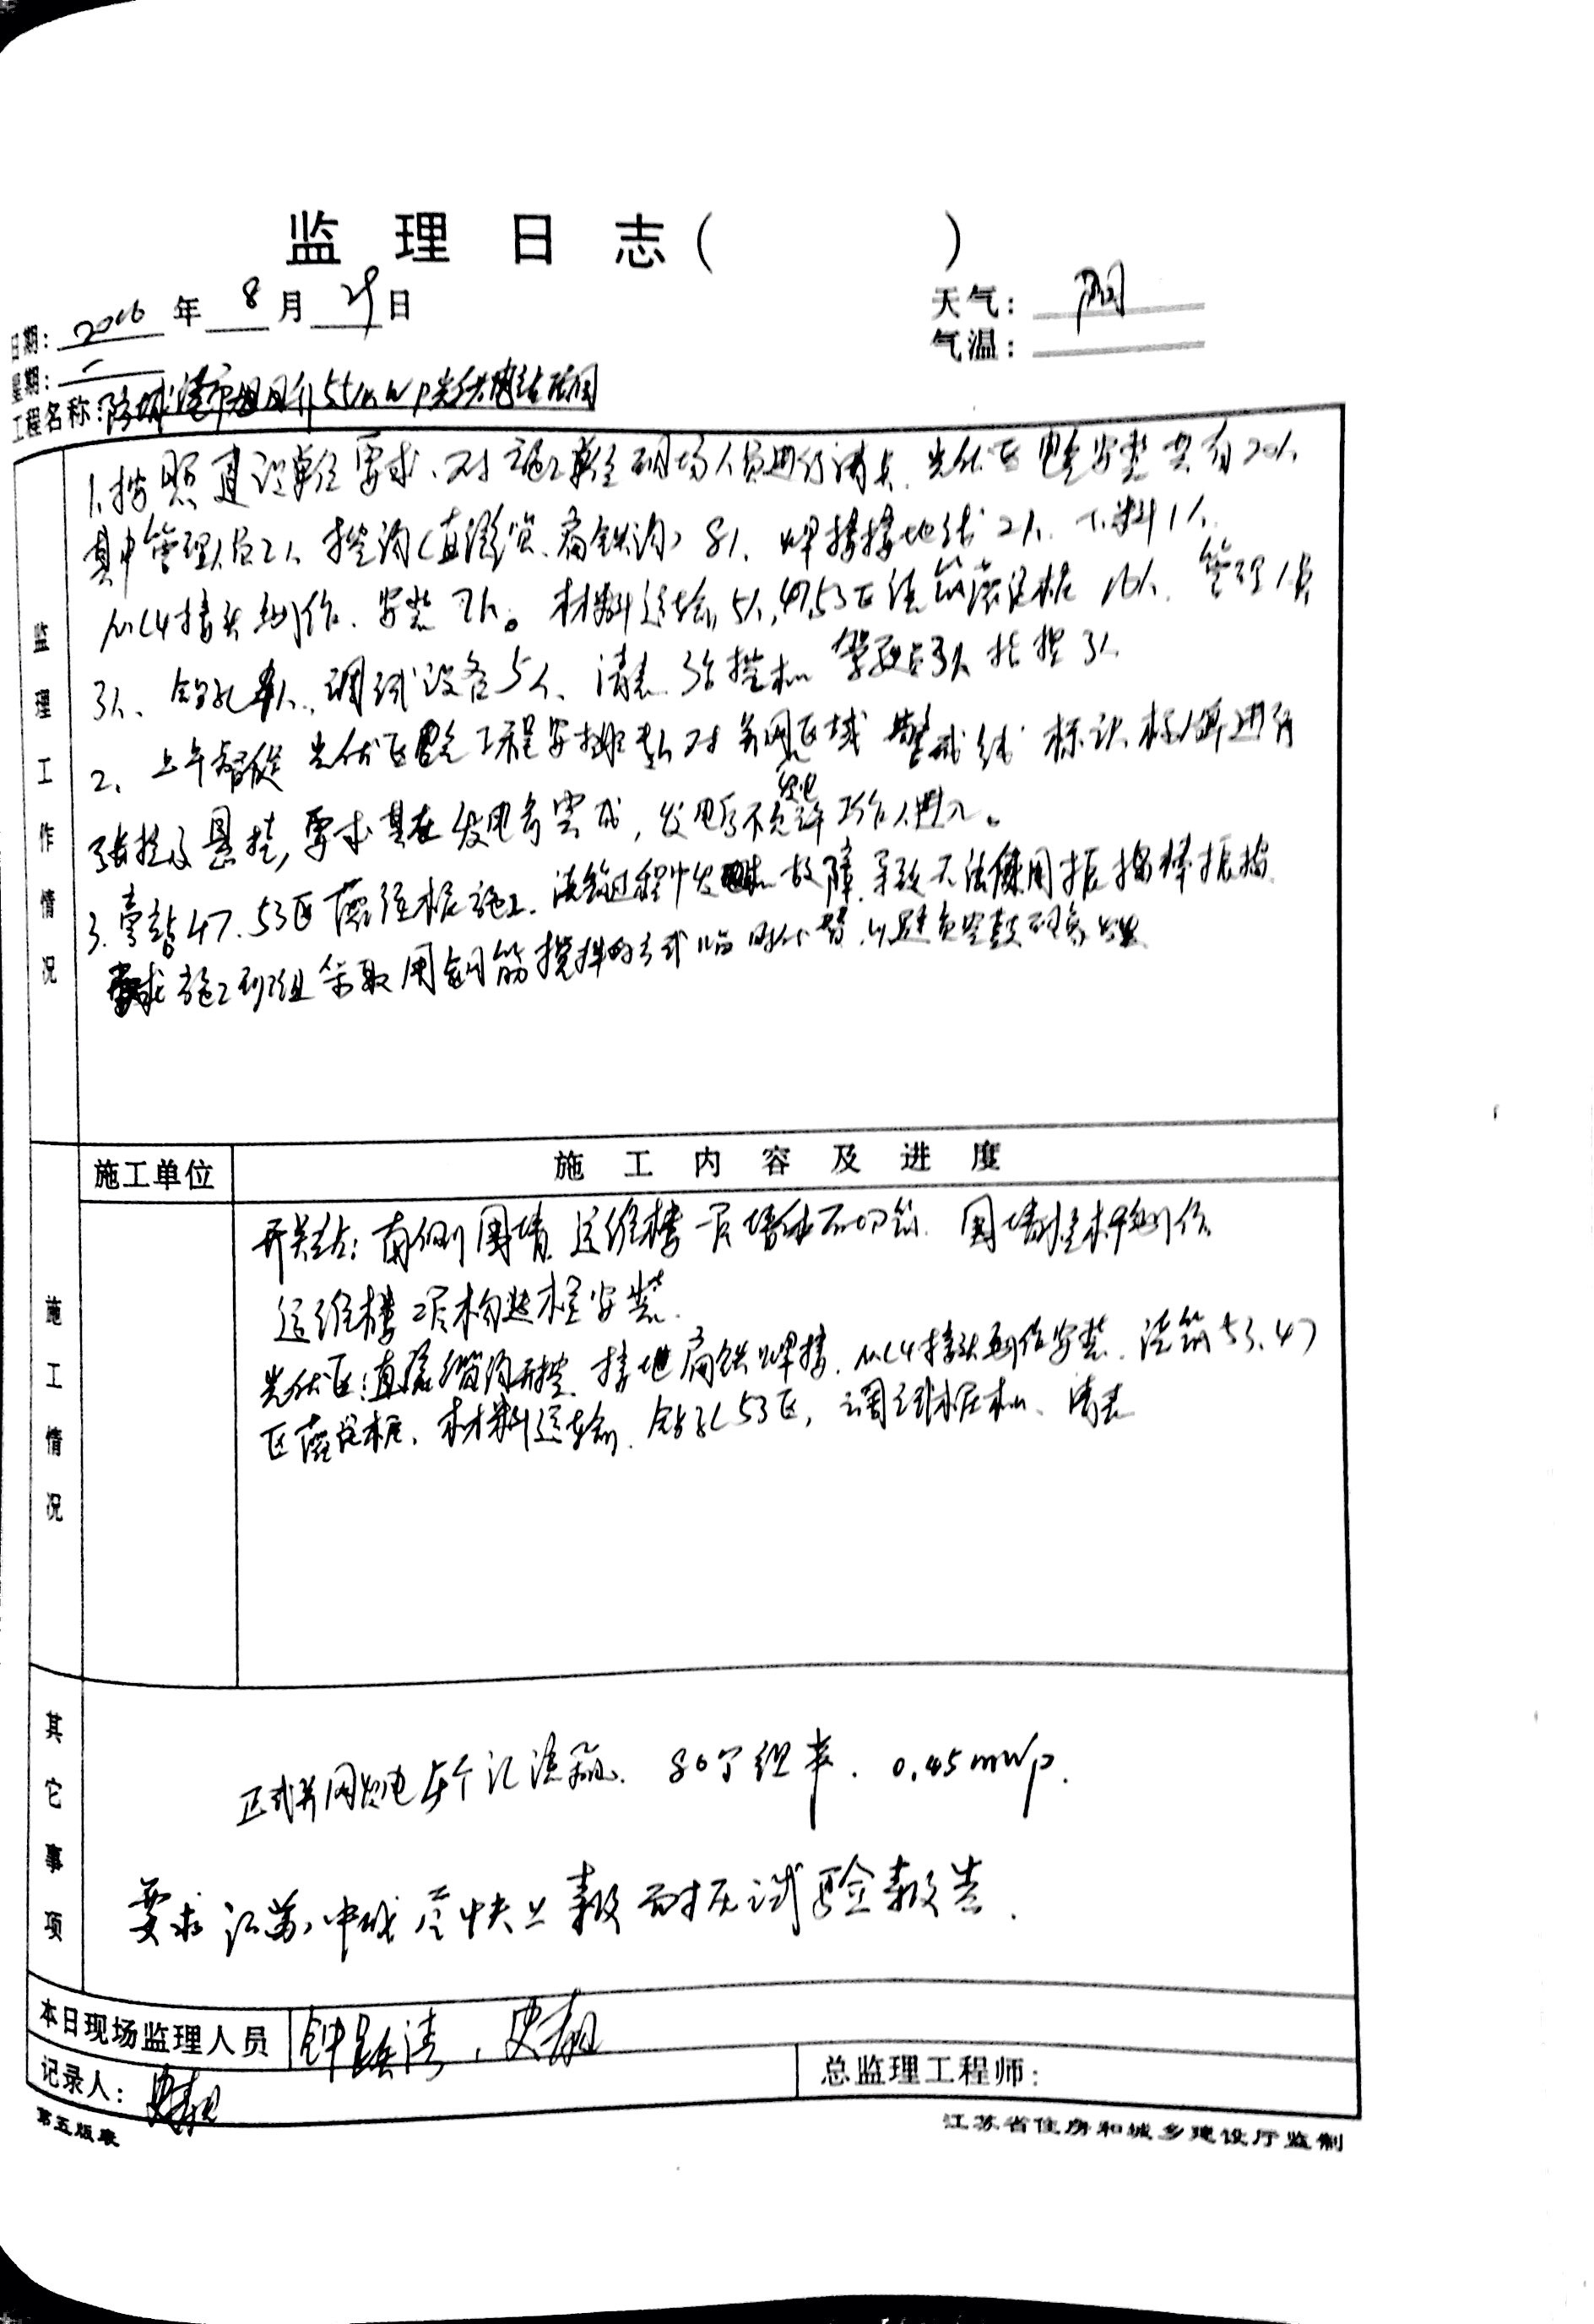 监理日志( )
日期: 2016 年 8 月 29 日
天气: 阴
星期: 一
气温:
工程名称: 防城港市 光伏电站项目
监理工作情况
1、按照建设单位要求、对施工单位现场人员进行清点、光伏区电气安装共有20人
其中管理人员2人 挖沟(直流缆、扁铁沟)8人、焊接接地线2人、下料1人
MC4接头制作、安装7人。材料运输5人,47、53区浇筑灌注桩16人、管理人员
3人、钻孔 人、调试设备5人、清表 3台挖机 驾驶员3人 指挥3人
2、上午督促光伏区电气工程安排专人对并网区域警戒线 标识标牌进行
张拉及悬挂,要求其在发电前完成,发电后不允许工作人进入。
3.旁站47.53区灌注桩施工、浇筑过程中 故障、导致无法使用振捣棒振捣
要求施工班组采取用钢筋搅拌的方式临时代替、以避免空鼓现象出现
施工单位
施工内容及进度
施工情况
开关站: 南侧围墙、运维楼一层墙体砌筑、围墙 制作
运维楼二层构造柱安装.
光伏区:直流缆沟开挖、接地扁铁焊接、MC4接头制作安装、浇筑53、47
区灌注桩、材料运输、钻孔53区, 调试桩机、清表
其它事项
正式并网发电5个汇流箱、80个组串、0.45mWp.
要求江苏中城尽快上报耐压试验报告.
本日现场监理人员
记录人:
总监理工程师:
第五版表
江苏省住房和城乡建设厅监制